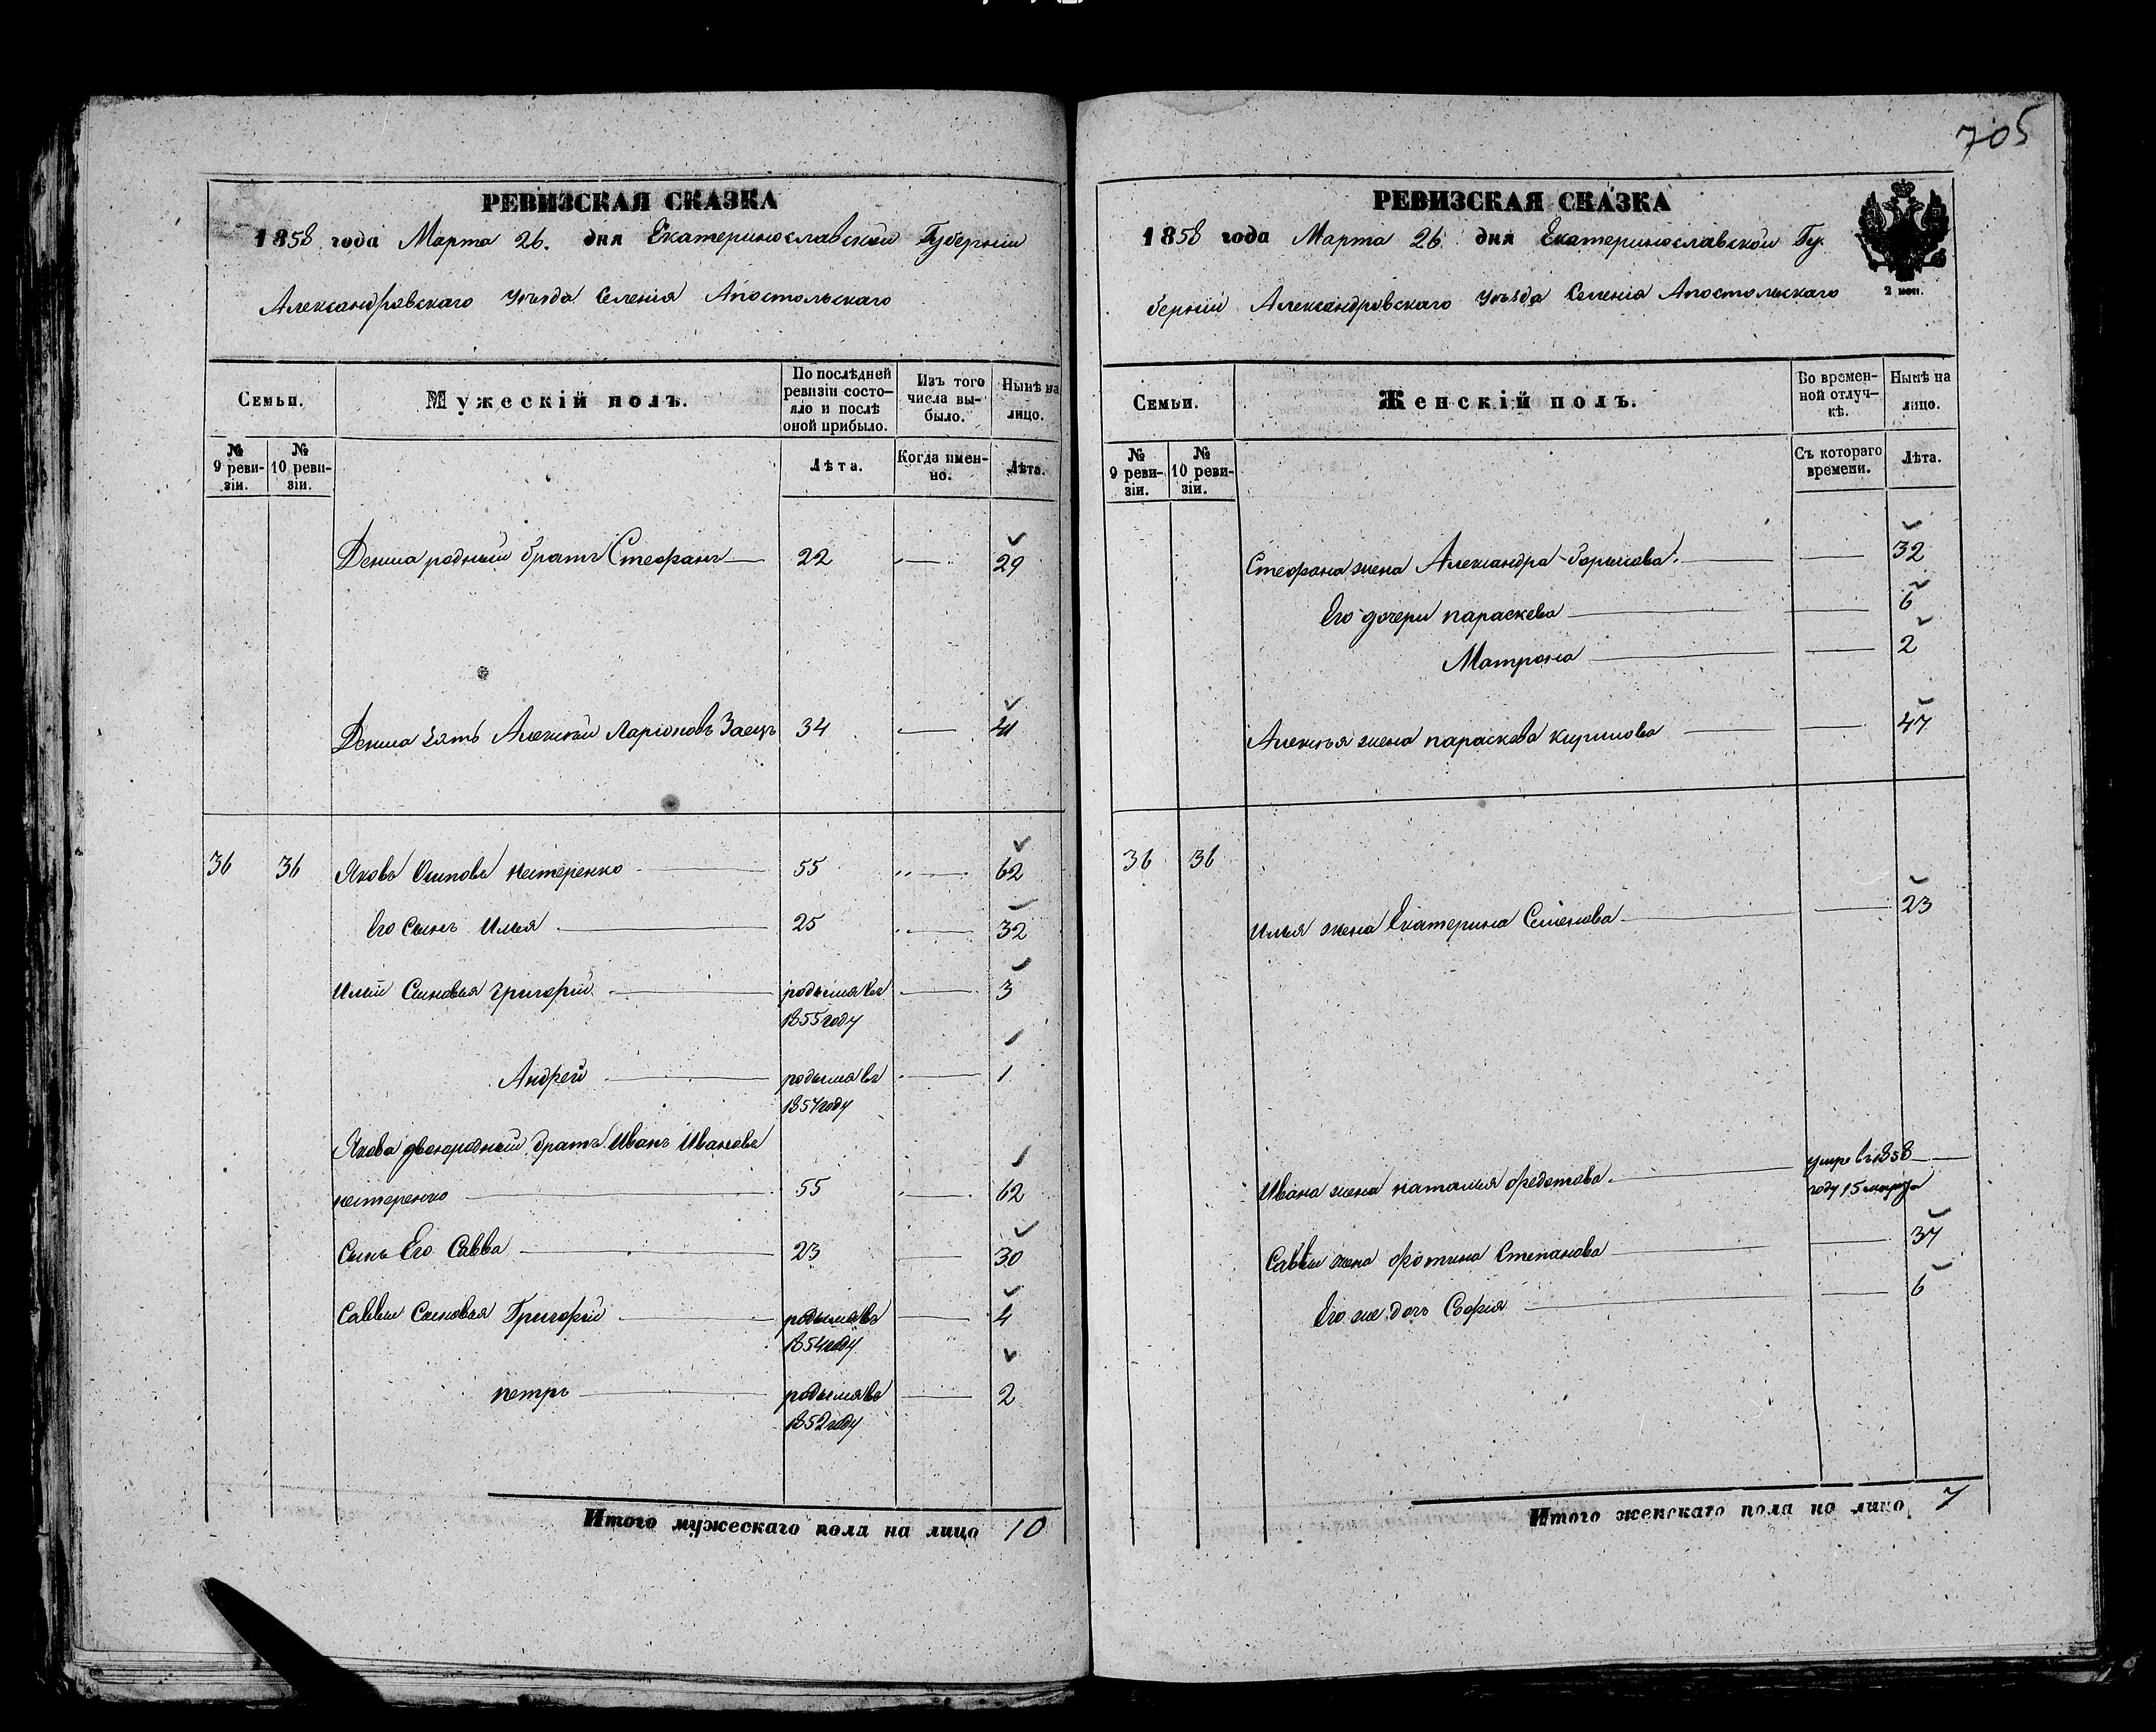 705
РЕВИЗСКАЯ СКАЗКА
1858 года Марта 26. дня Екатеринославской Губерніи
Александровскаго уѣзда Селенія Апостольскаго
Семьи.
Мужескій полъ.
По послѣдней ревизіи состояло и послѣ оной прибыло.
Изъ того числа выбыло.
Нынѣ на лицо.
№ 9 ревизіи.
№ 10 ревизіи.
Лѣта.
Когда именно.
Лѣта.
Дениса родный братъ Стефанъ 22 29
Дениса зять Алексѣй Ларіоновъ Заецъ 34 41
36 36 Яковъ Осиповъ Нестеренко 55 62
Его сынъ Илья 25 32
Ильи Сыновья Григорій родился въ 3
1855 году
Андрей родился въ 1
1857 году
Якова двоюродный братъ Иванъ Ивановъ
нестеренко 55 62
Сынъ Его Савва 23 30
Саввы Сыновья Григорій родился въ 4
1854 году
петръ родился въ 2
1852 году
Итого мужескаго пола на лицо 10
РЕВИЗСКАЯ СКАЗКА
1858 года Марта 26 дня Екатеринославской Гу-
берніи Александровскаго уѣзда Селенія Апостольскаго
2 коп.
Семьи.
Женскій полъ.
Во временной отлучкѣ.
Нынѣ на лицо.
№ 9 ревизіи.
№ 10 ревизіи.
Съ котораго времени.
Лѣта.
Стефана жена Александра 32
Его дочери параскева 6
Матрона 2
Алексѣя жена параскева кирилова 47
36 36
Илья жена Екатерина Семенова 23
Ивана жена наталья федотова умре въ 1858
году 15 марта
Саввы жена фотина Степанова 37
Его же дочь Софія 6
Итого женскаго пола на лицо 7